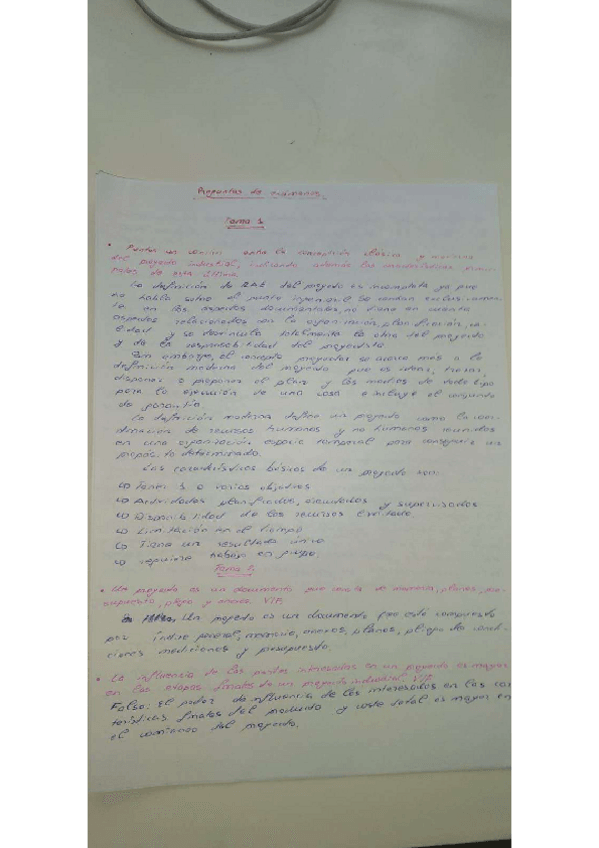 Preguntas de exámenes.
Tema 1
entre la concepción clásica y moderna
del proyecto industrial, indicando además las características
de esta última
La definición de RAE del proyecto es incompleta ya que
no habla sobre el punto ingenieril. Se centran
en los aspectos documentales, no tiene en cuenta
aspectos relacionados con la organización, planificación,
y se desvincula totalmente la obra del proyecto
y de la responsabilidad del proyectista
Sin embargo, el concepto proyectar se acerca más a la
definición moderna del proyecto que es idear, trazar,
disponer o proponer el plan y los medios de todo tipo
para la ejecución de una cosa
de
La definición moderna define un proyecto como la
de recursos humanos y no humanos reunidos
en una organización espacio temporal para conseguir un
propósito determinado.
Las características básicas de un proyecto son:
Tener 1 o varios objetivos
Actividades planificadas, ejecutadas y supervisadas
de los recursos
Limitación en el tiempo
Tiene un resultado único
requiere trabajo en grupo.
Tema 2
• Un proyecto es un documento que consta de memoria, planos, pre-
supuesto, pliego y anexos V/F
Un proyecto es un documento que está compuesto
por índice general, memoria, anexos, planos, pliego de condi-
ciones mediciones y presupuesto.
• La influencia de las partes interesadas en un proyecto es mayor
en las etapas finales de un proyecto industrial V/F
Falso: el poder de influencia de los interesados en las carac-
terísticas finales del producto y coste total es mayor en
el comienzo del proyecto.